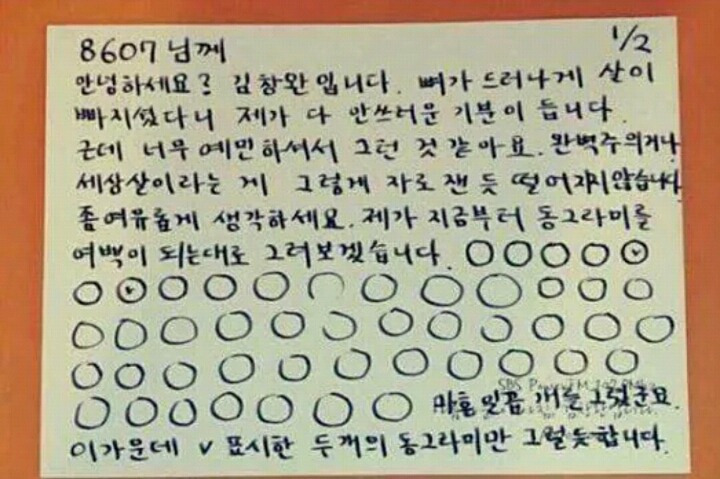 8607님께 1/2
안녕하세요? 김창완입니다. 뼈가 드러나게 살이
빠지셨다니 제가 다 안쓰러운 기분이 듭니다.
근데 너무 예민하셔서 그런 것 같아요. 완벽주의거나
세상살이라는 게 그렇게 자로 잰 듯 떨어지지 않습니다
좀 여유롭게 생각하세요. 제가 지금부터 동그라미를
여백이 되는대로 그려보겠습니다.
SBS Power FM 107.7MHz
마흔일곱 개를 그렸군요.
이 가운데 v 표시한 두개의 동그라미만 그럴듯합니다.